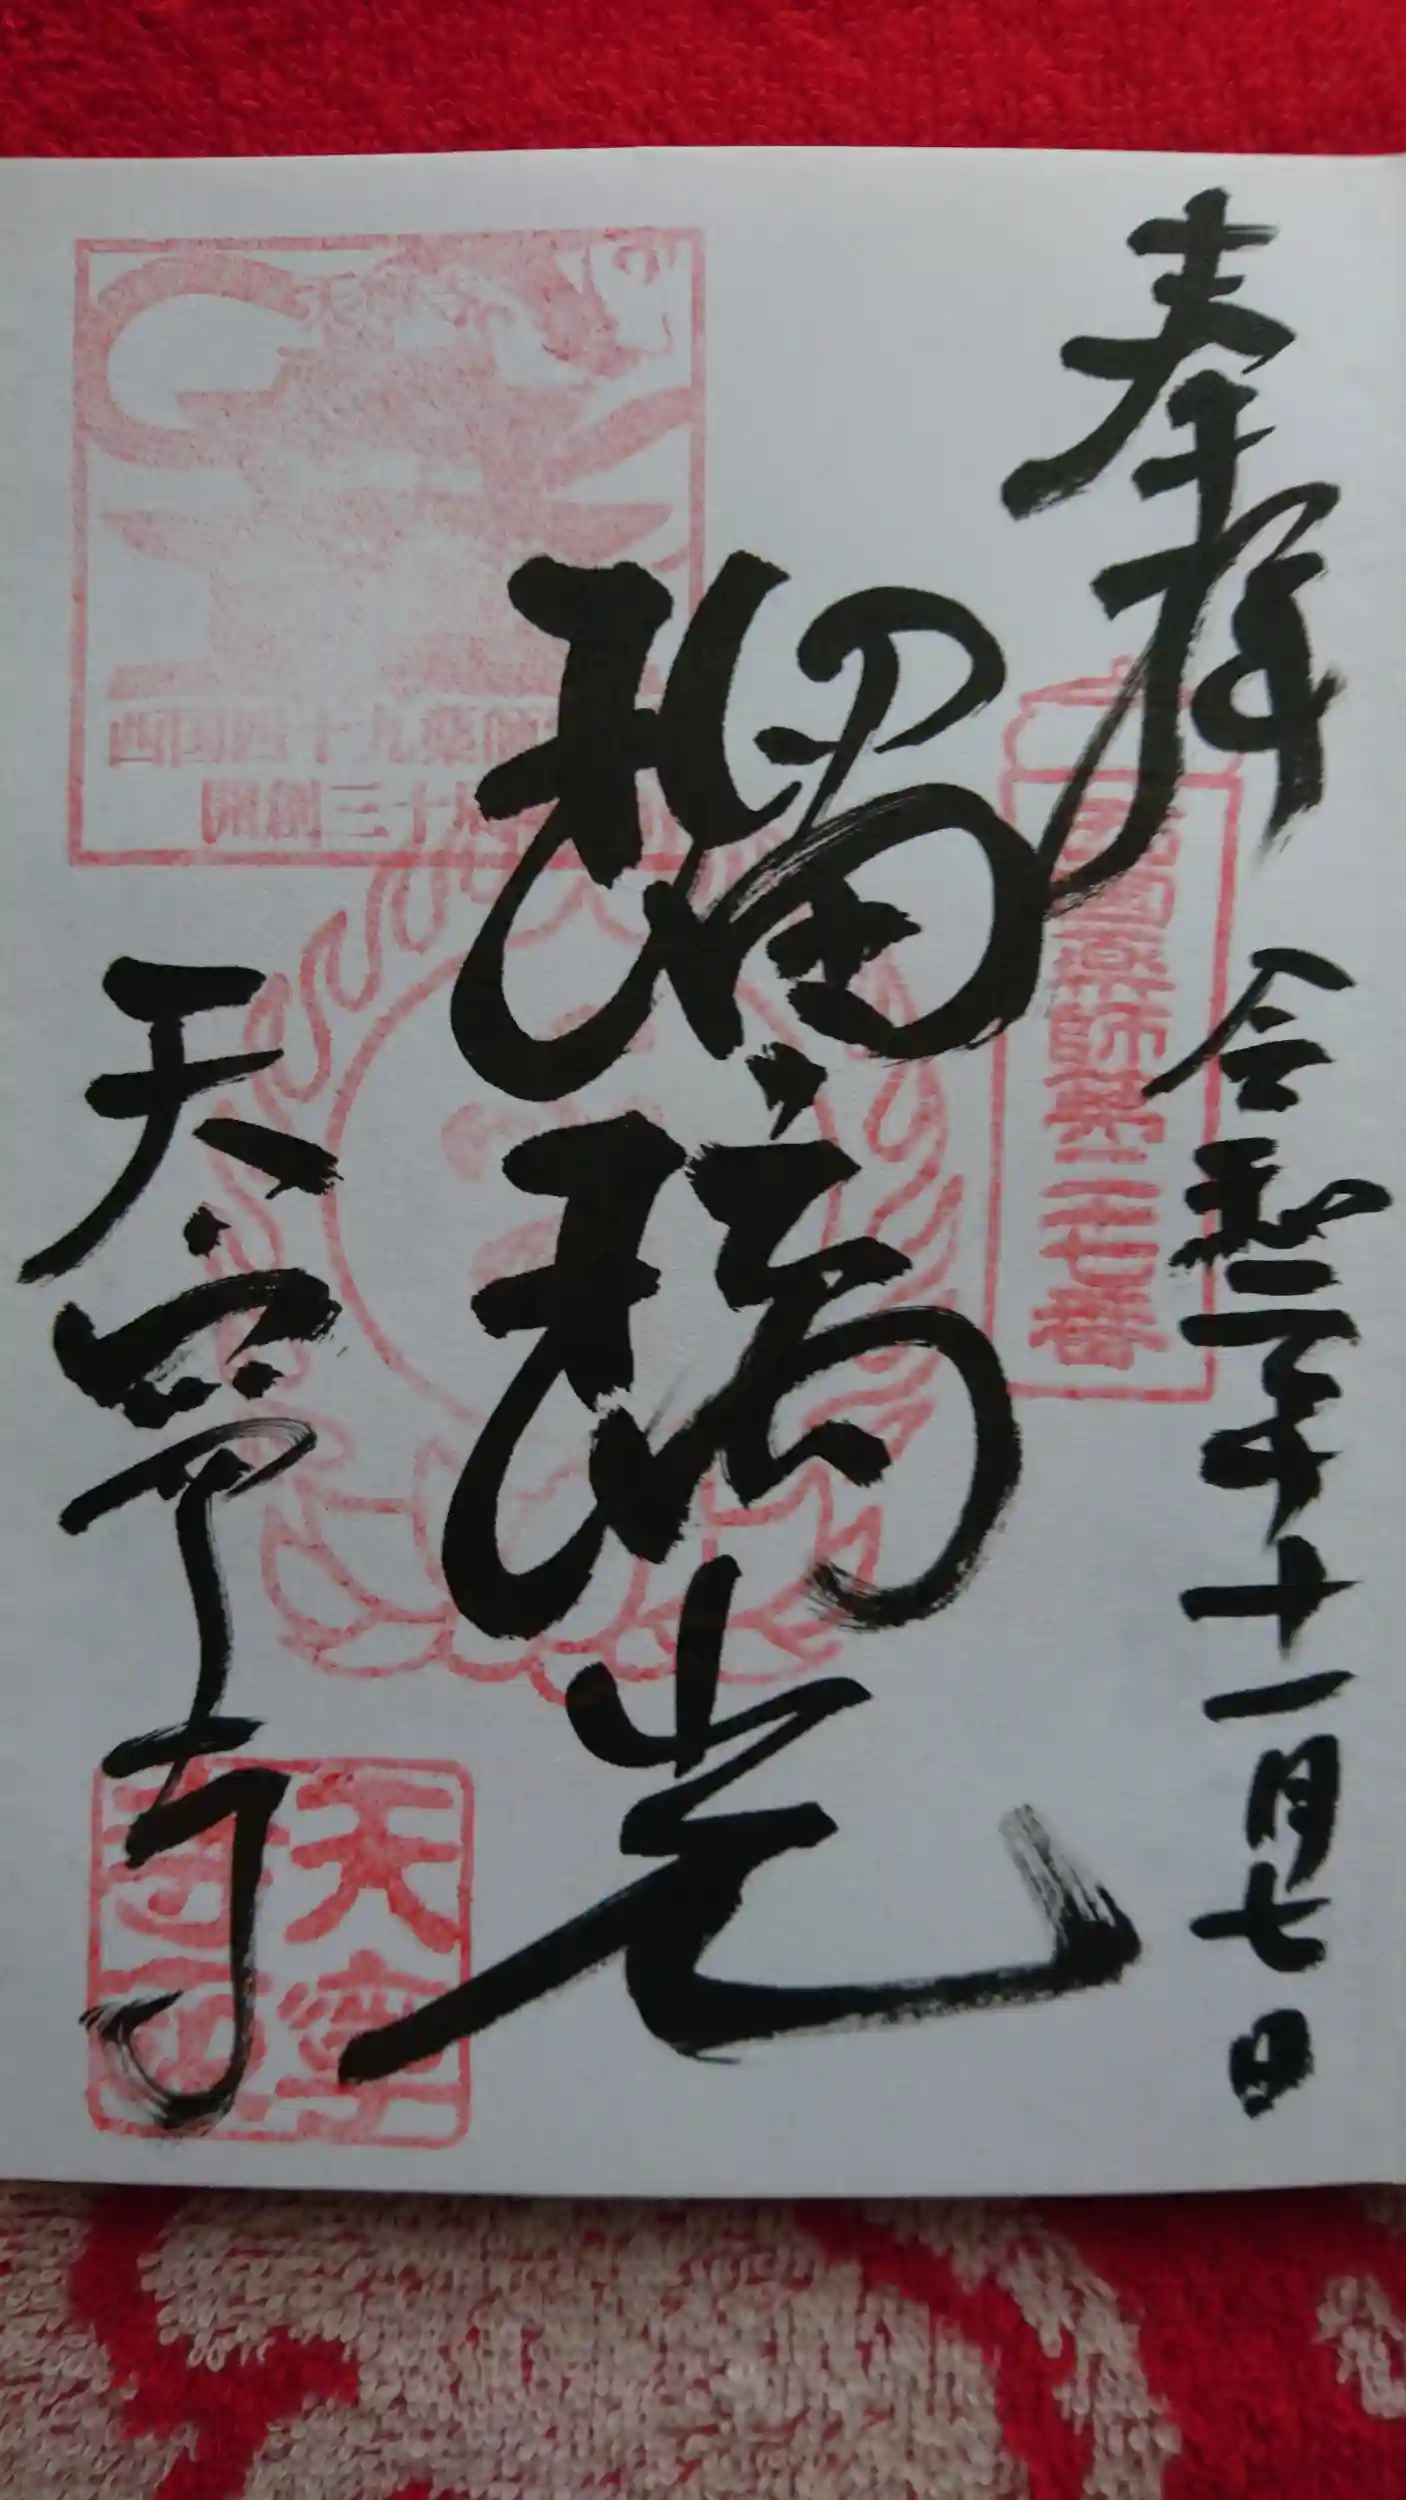 奉拝
令和二年十一月七日
西国薬師第二七番
瑠璃光
西国四十九薬師
開創三十周
天寧寺
天寧
寺印